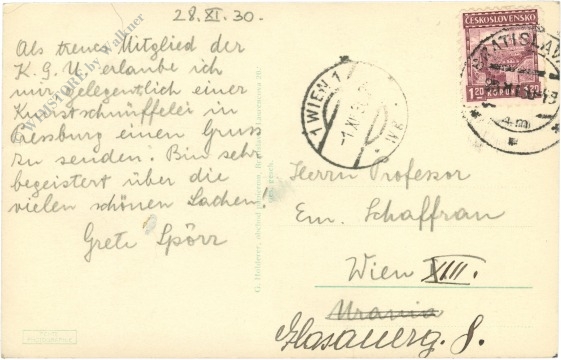 28.XI.30.
Als treues Mitglied der
K.G.U. erlaube ich
mir gelegentlich einer
Kunstschnüffelei in
Pressburg einen Gruss
zu senden. Bin sehr
begeistert über die
vielen schönen Sachen.
Grete Spörr
WEBSTORE by Walkner
ČESKOSLOVENSKO
1.20
1.20
BRATISLAVA
1 WIEN 1
-1.XII.30
Herrn Professor
Em. Schaffran
Wien XIII.
Urania
Glasauerg. 8.
G. Hölderer, obchod